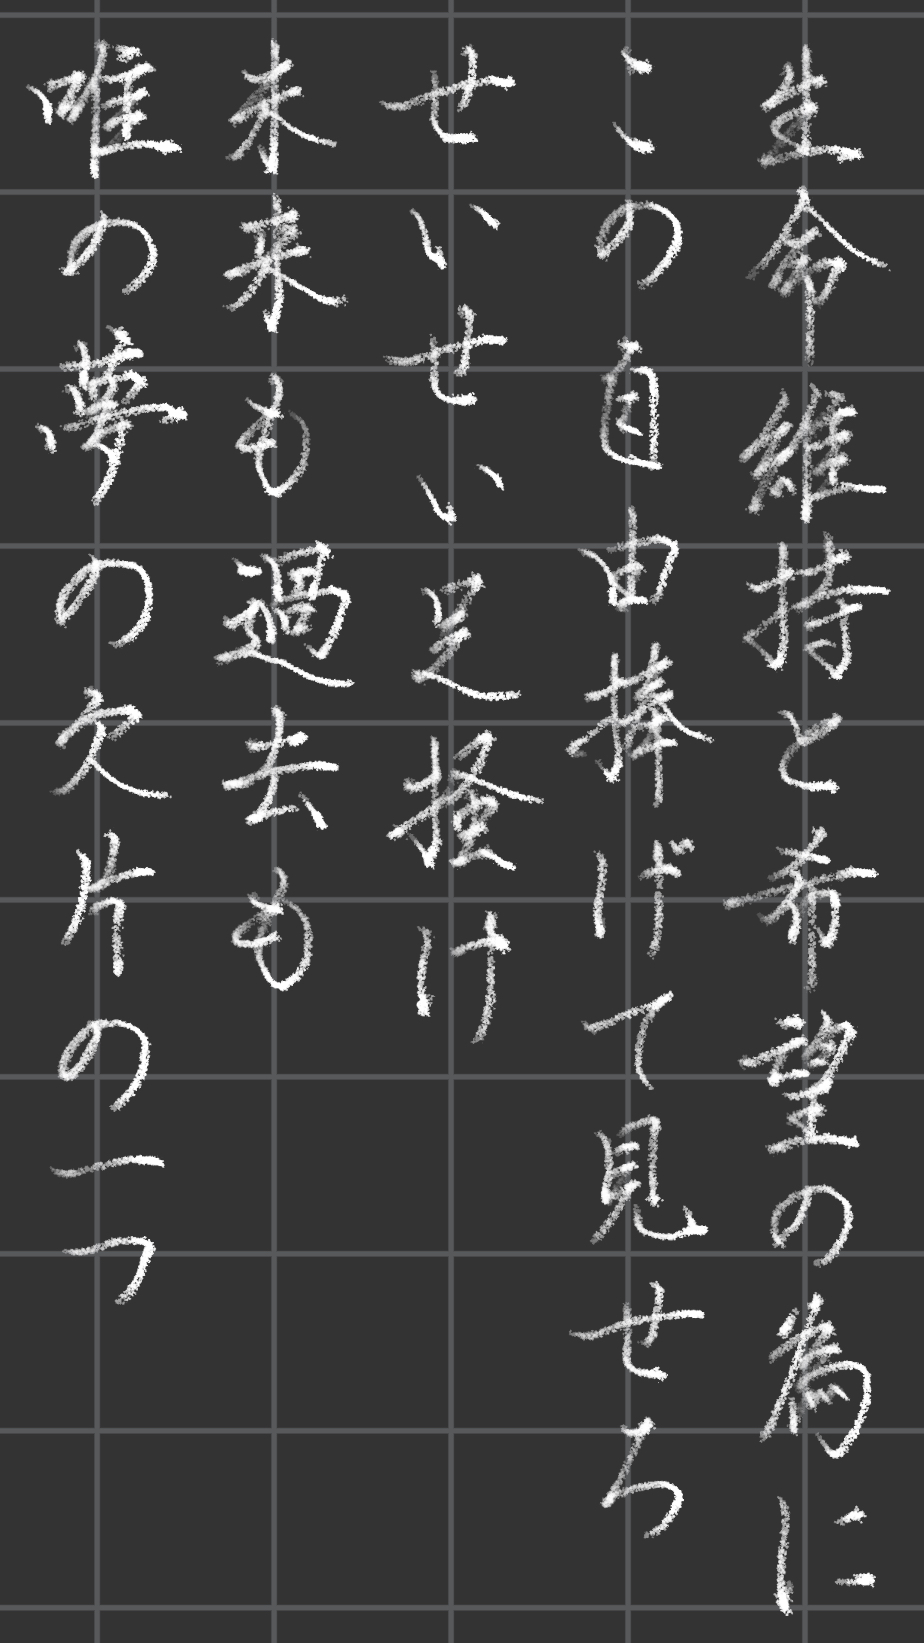 生命維持と希望の為に
この自由捧げて見せろ
せいぜい足掻け
未来も過去も
唯の夢の欠片の一つ